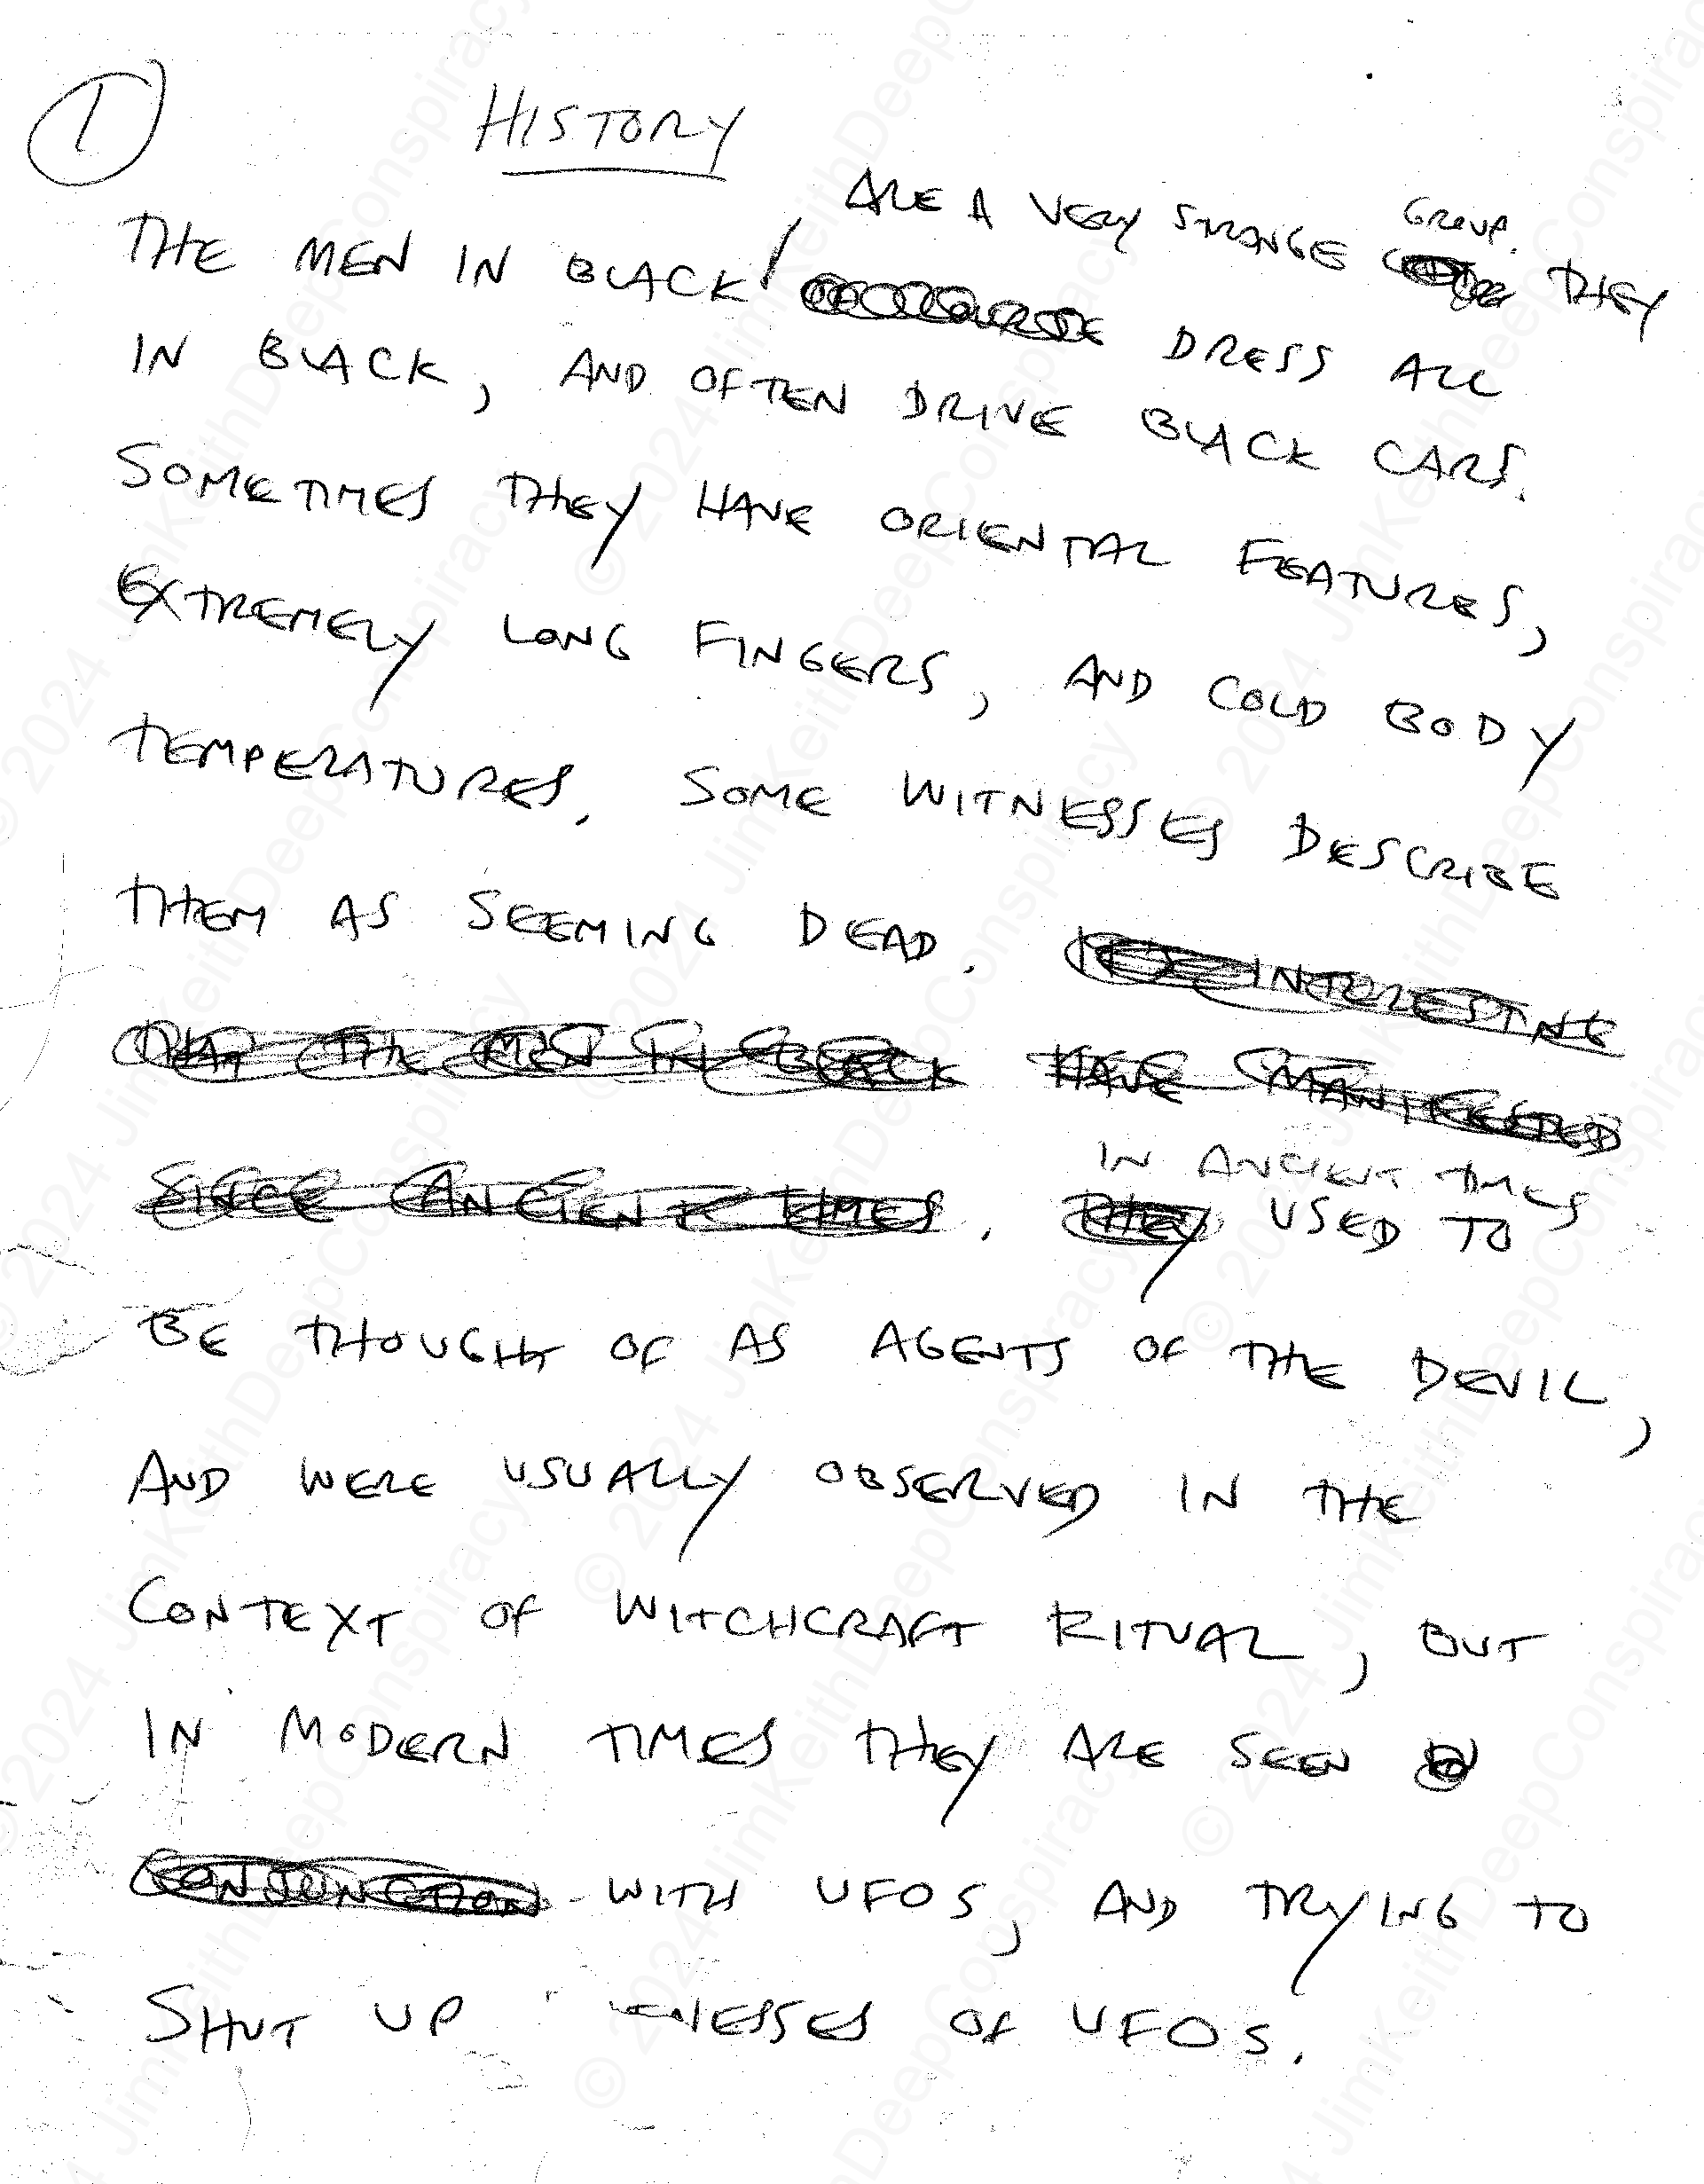 1
HISTORY
ARE A VERY STRANGE GROUP. THEY
THE MEN IN BLACK / DRESS ALL
IN BLACK, AND OFTEN DRIVE BLACK CARS.
SOMETIMES THEY HAVE ORIENTAL FEATURES,
EXTREMELY LONG FINGERS, AND COLD BODY
TEMPERATURES. SOME WITNESSES DESCRIBE
THEM AS SEEMING DEAD. INTERESTING
THAT THE MEN IN BLACK HAVE MANIFESTED
IN ANCIENT TIMES
SINCE ANCIENT TIMES. THEY USED TO
BE THOUGHT OF AS AGENTS OF THE DEVIL,
AND WERE USUALLY OBSERVED IN THE
CONTEXT OF WITCHCRAFT RITUAL, BUT
IN MODERN TIMES THEY ARE SEEN
CONJUNCTION WITH UFOS, AND TRYING TO
SHUT UP NESSES OF UFOS.
© 2024 JimKeithDeepConspiracy